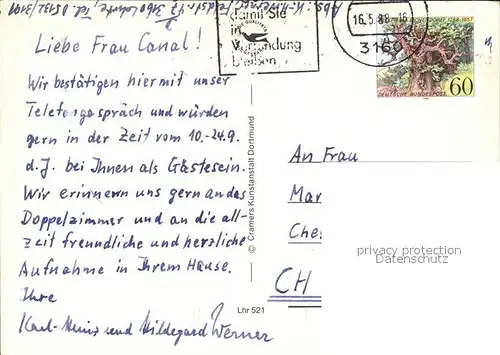 Liebe Frau Canal!
Wir bestätigen hiermit unser
Telefongespräch und würden
gern in der Zeit vom 10.-24.9.
d.J. bei Ihnen als Gäste sein.
Wir erinnern uns gern an das
Doppelzimmer und an die all-
zeit freundliche und herzliche
Aufnahme in Ihrem Hause.
Ihre
Karl-Heinz und Hildegard Werner
damit Sie
in
Verbindung
bleiben
16.5.88
3160
1788-1857
60
DEUTSCHE BUNDESPOST
© Cramers Kunstanstalt Dortmund
Lhr 521
An Frau
Mar
Che
CH
privacy protection
Datenschutz